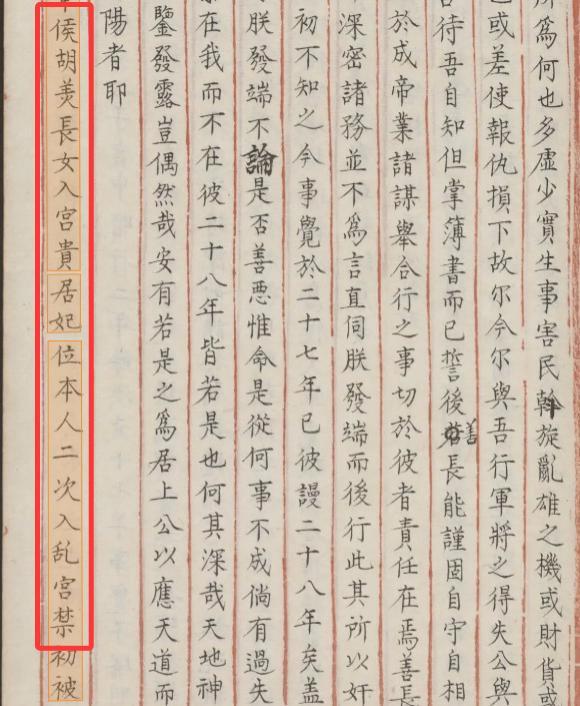 所爲何也多虛少實生事害民斡旋亂雄之機或財貨或
或差使報仇損下故尔今尔與吾行軍將之得失公與
待吾自知但掌簿書而已誓後善長能謹固自守自相
於成帝業諸謀舉合行之事切於彼者責任在焉善長
深密諸務並不爲言直伺朕發端而後行此其所以奸
初不知之今事覺於二十七年已彼謾二十八年矣盖
朕發端不論是否善悪惟命是從何事不成倘有過失
在我而不在彼二十八年皆若是也何其深哉天地神
鑒發露豈偶然哉安有若是之爲居上公以應天道而
陽者耶
侯胡羙長女入宮貴居妃位本人二次入乱宮禁初被